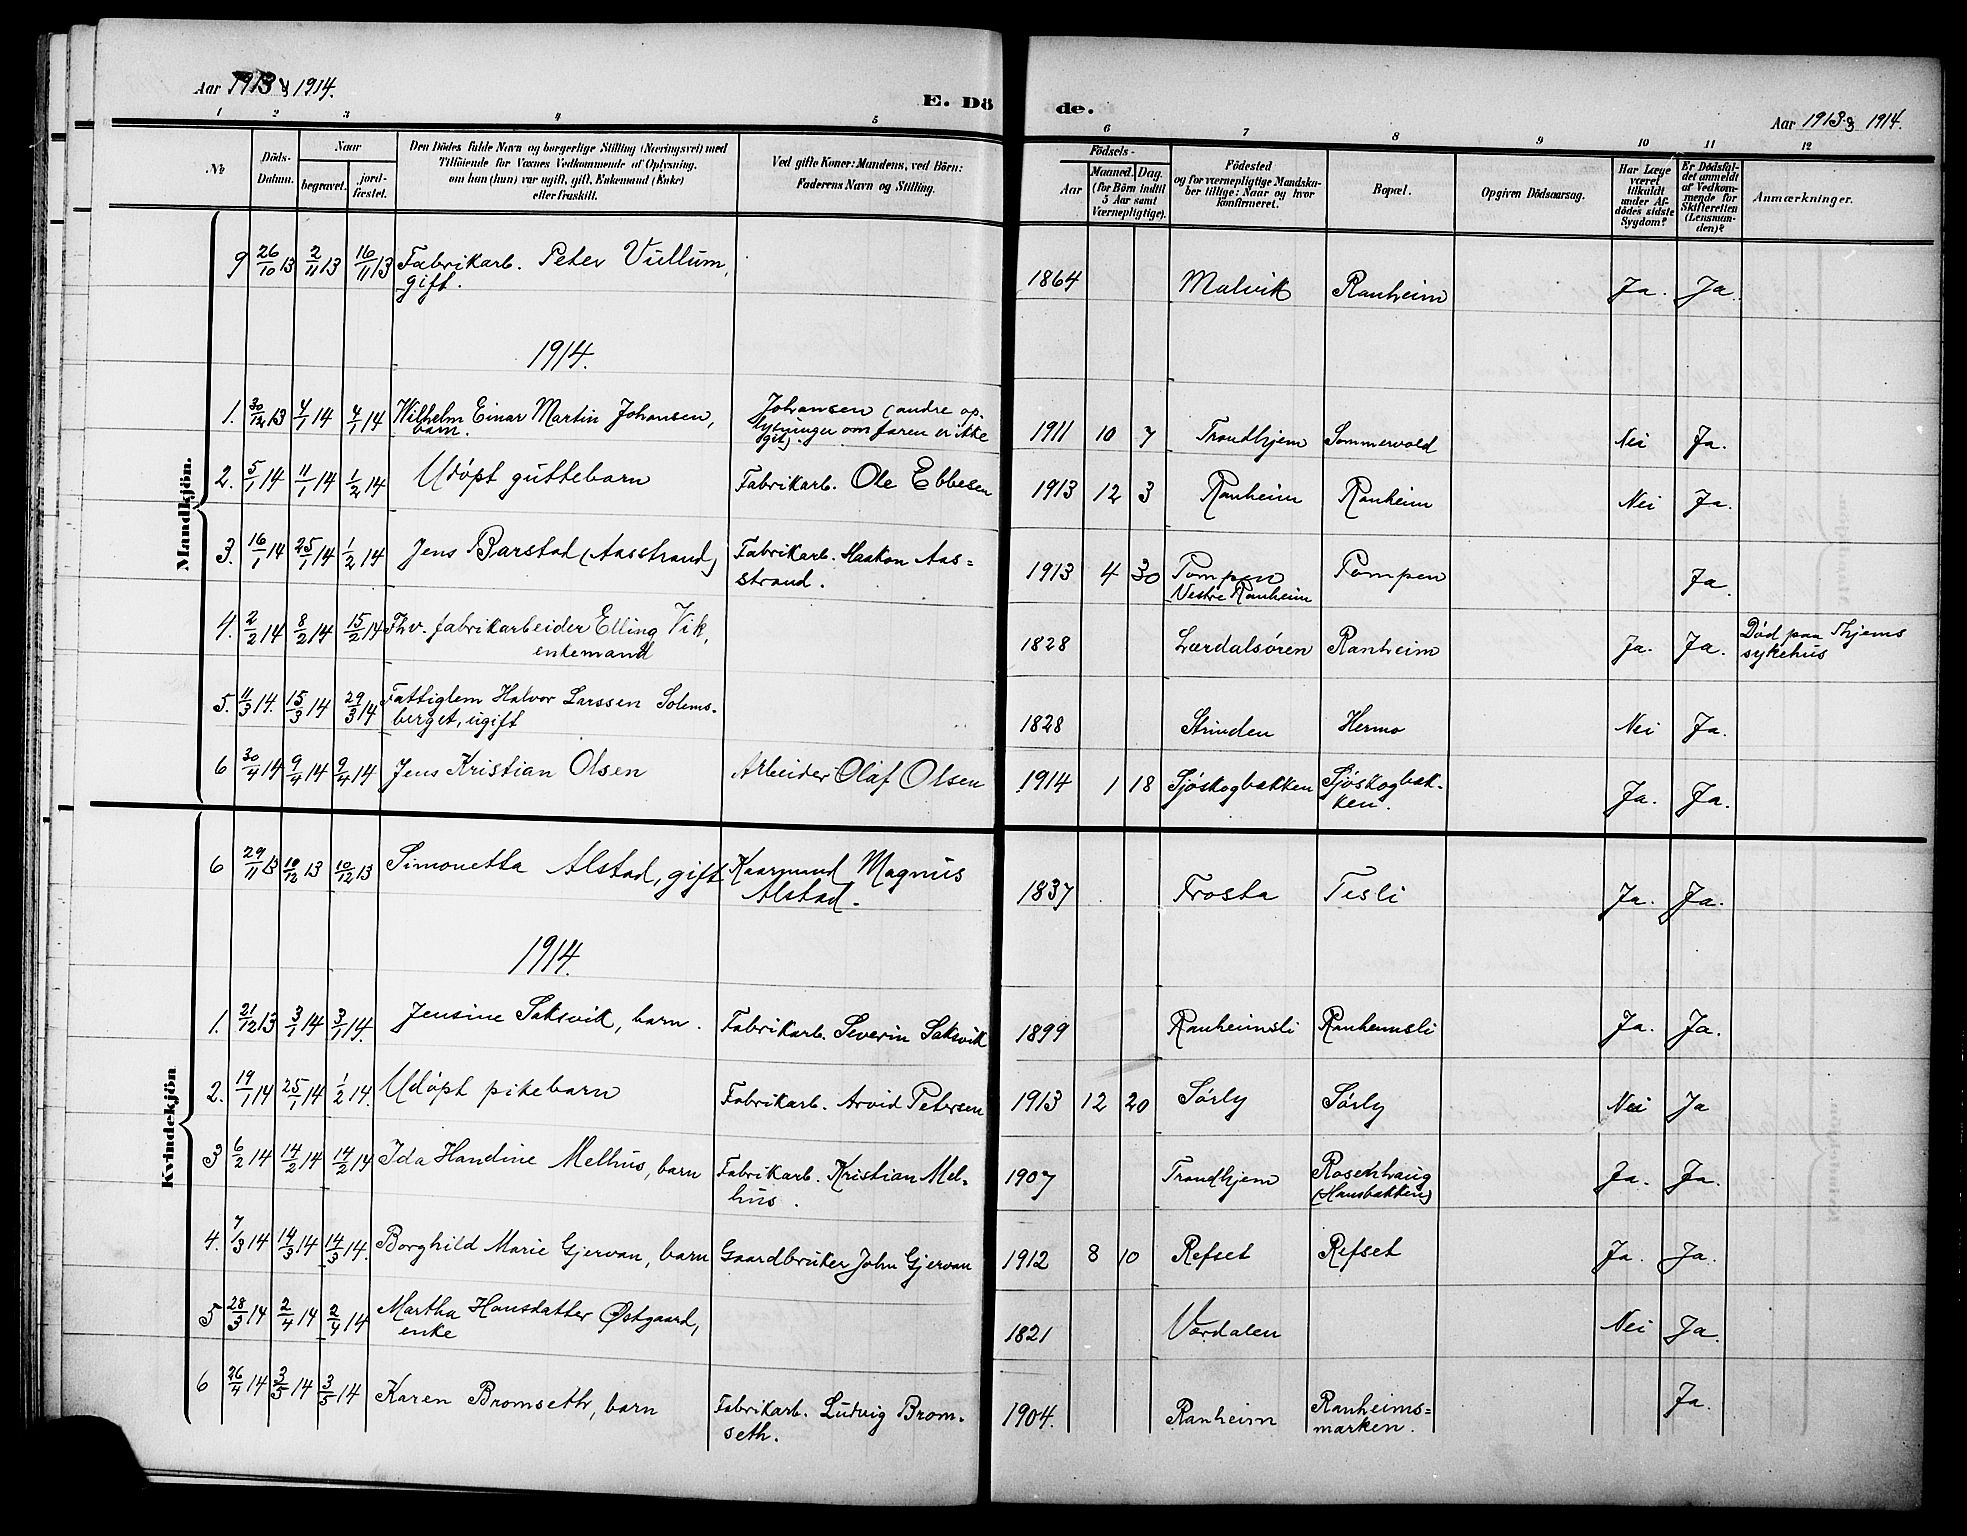 Aar 1913 & 1914.
E. Dö
de.
Aar 1913 & 1914.
1 2 3 4 5 6 7 8 9 10 11 12
№
Döds-
Datum.
Naar
begravet.
jord-
fæstet.
Den Dödes fulde Navn og borgerlige Stilling (Næringsvei) med
Tilföiende for Voxnes Vedkommende af Oplysning,
om han (hun) var ugift, gift, Enkemand (Enke)
eller fraskilt.
Ved gifte Koner: Mandens, ved Börn:
Faderens Navn og Stilling.
Födsels-
Aar
Maaned. Dag.
(for Börn indtil
5 Aar samt
Værnepligtige).
Födested
og for værnepligtige Mandska-
ber tillige: Naar og hvor
konfirmeret.
Bopæl.
Opgiven Dödsaarsag.
Har Læge
været
tilkaldt
under Af-
dödes sidste
Sygdom?
Er Dödsfal-
det anmeldt
af Vedkom-
mende for
Skifteretten
(Lensman-
den)?
Anmærkninger.
Mandkjön.
9 26/10 13 2/11 13 16/11 13 Fabrikarb. Peter Vullum, 1864 Malvik Ranheim Ja. Ja.
gift.
1914.
1. 30/12 13 4/1 14 4/1 14 Wilhelm Einar Martin Johansen, Johansen (andre op- 1911 10 7 Trondhjem Sommervold Nei Ja.
barn. lysninger om faren er ikke
git).
2. 5/1 14 11/1 14 1/2 14 Udøpt guttebarn Fabrikarb. Ole Ebbesen 1913 12 3 Ranheim Ranheim Nei Ja.
3. 16/1 14 25/1 14 1/2 14 Jens Barstad (Aasstrand) Fabrikarb. Haakon Aas= 1913 4 30 Pompen Pompen Ja.
strand. Vestre Ranheim
4. 2/2 14 8/2 14 15/2 14 Fhv. fabrikarbeider Elling Vik, 1828 Lærdalsøren Ranheim Ja. Ja. Død paa Thjems
enkemand sykehus
5. 11/3 14. 15/3 14 29/3 14 Fattiglem Halvor Larssen Solems- 1828 Strinden Hermo Nei Ja.
berget, ugift
6 30/4 14 9/4 14 9/4 14 Jens Kristian Olsen Arbeider Olaf Olsen 1914 1 18 Sjøskogbakken Sjøskogbak- Ja. Ja.
ken.
Kvindekjön
6 29/11 13 10/12 13 10/12 13 Simonetta Alstad, gift Kaarmand Magnus 1837 Frosta Tesli Ja. Ja.
Alstad.
1914.
1. 21/12 13 3/1 14 3/1 14. Jensine Saksvik, barn. Fabrikarb. Severin Saksvik 1899 Ranheimsli Ranheimsli Ja. Ja.
2. 19/1 14 25/1 14 1/2 14. Udøpt pikebarn Fabrikarb. Arvid Petersen 1913 12 20 Sørly Sørly Nei Ja
3 6/2 14 14/2 14 14/2 14 Ida Handine Melhus, barn Fabrikarb. Kristian Mel- 1907 Trondhjem Rosenhaug Ja. Ja.
hus. (Hansbakken)
4. 7/3 14 14/3 14 14/3 14. Borghild Marie Gjervan, barn Gaardbruker John Gjervan 1912 8 10 Refset Refset Ja. Ja.
5 28/3 14 2/4 14 2/4 14 Martha Hansdatter Østgaard, 1821 Værdalen Nei Ja.
enke
6 26/4 14 3/5 14 3/5 14 Karen Bromseth, barn Fabrikarb. Ludvig Brom- 1904. Ranheim Ranheims= Ja.
seth. marken.